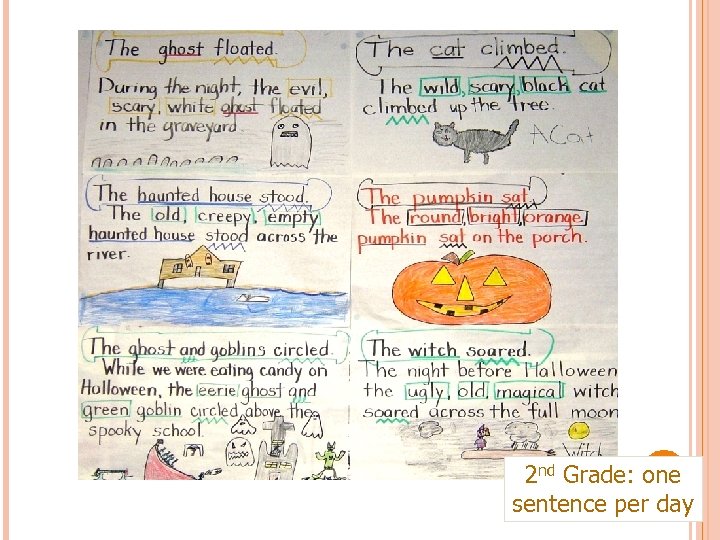 The ghost floated.
During the night, the evil,
scary, white ghost floated
in the graveyard.
The cat climbed.
The wild, scary, black cat
climbed up the tree.
A Cat
The haunted house stood.
The old, creepy, empty
haunted house stood across the
river.
The pumpkin sat.
The round, bright, orange
pumpkin sat on the porch.
The ghost and goblins circled.
While we were eating candy on
Halloween, the eerie ghost and
green goblin circled above the
spooky school.
The witch soared.
The night before Halloween
the ugly, old, magical witch
soared across the full moon
Witch
2nd Grade: one
sentence per day